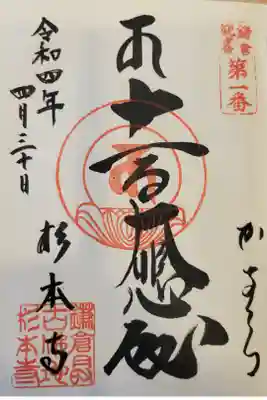 鎌倉
観音
第一番
かまくら
十一面大悲殿
令和四年
四月三十日
杉本寺
鎌倉最
古佛地
杉本寺